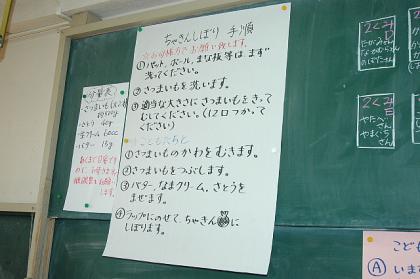 ちゃきんしぼり 手順
☆お母様方でお願い致します。
①バット、ボール、まな板等はまず
洗ってください。
②さつまいもを洗います。
③適当な大きさにさつまいもをきって
むしてください。(12口つかって
ください)
こどもたちと
①さつまいものかわをむきます。
②さつまいもをつぶします。
③バター、なまクリーム、さとうを
まぜます。
④ラップにのせて、ちゃきんに
しぼります。
分量表
さつまいも
さとう 40g
生クリーム 60cc
バター 15g
2くみ
D
2くみ
E
やたべさん
やまぐちさん
こども
Ⓐ いま